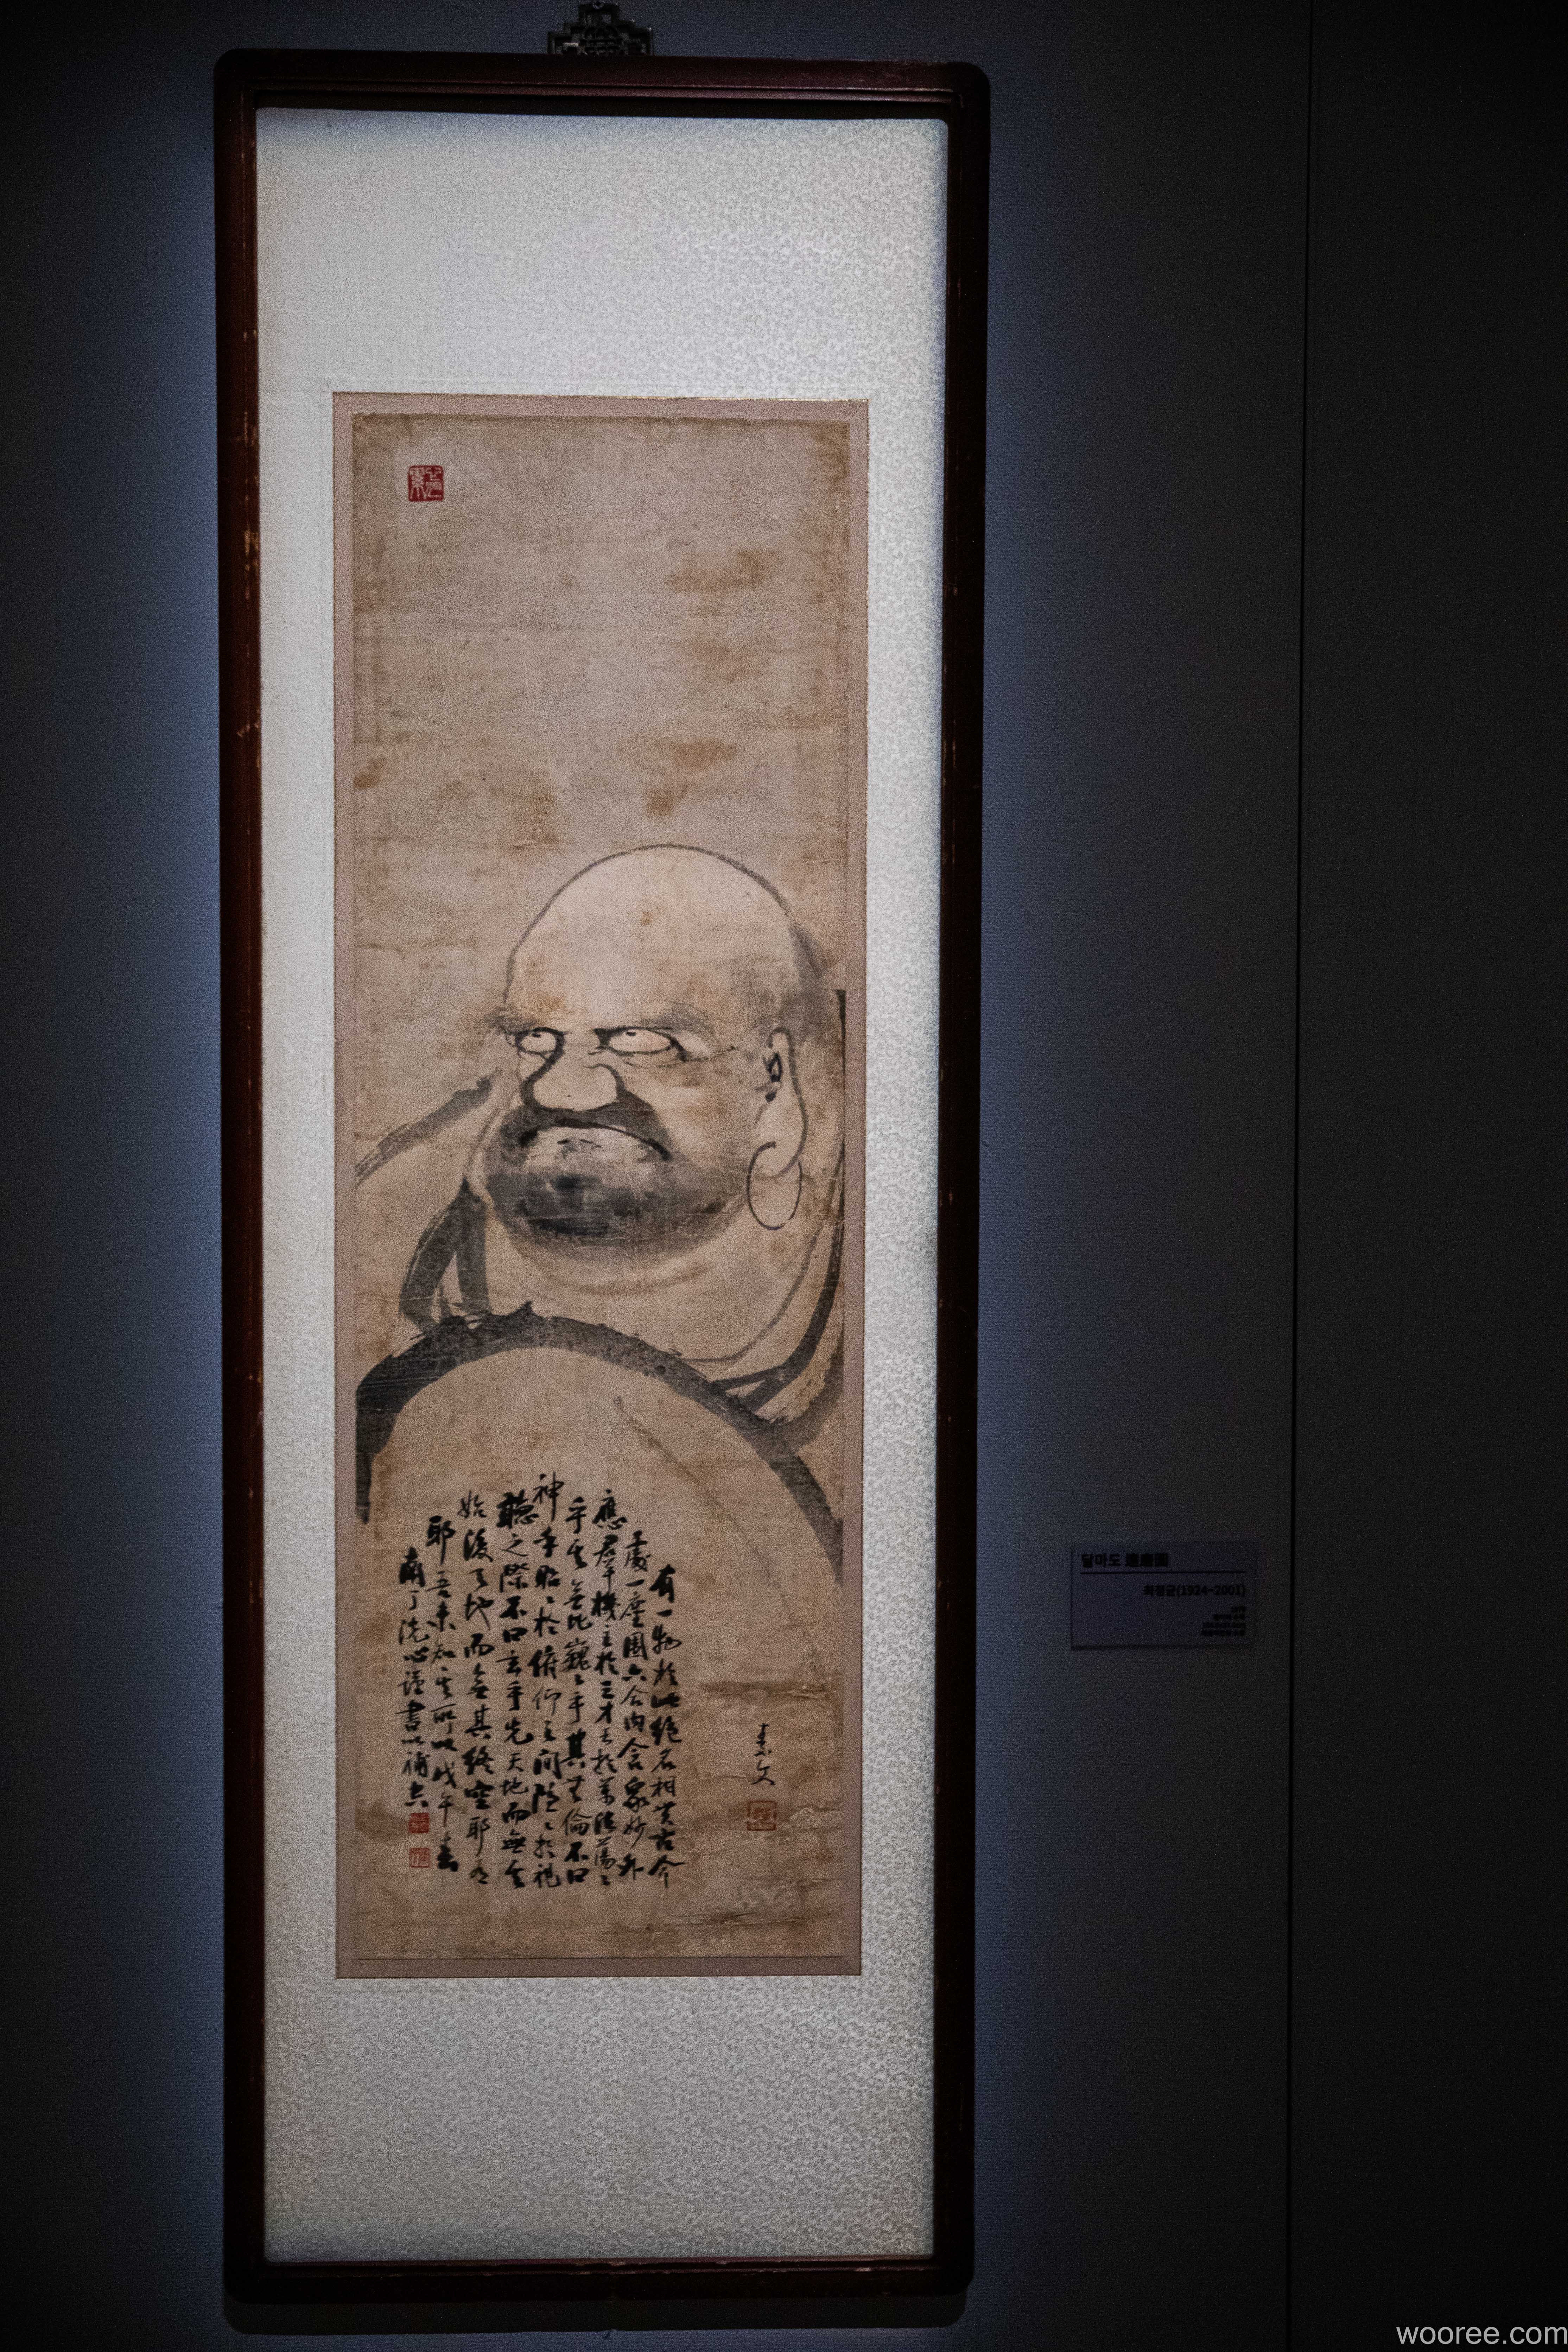 素文
有一物於此絶名相貫古今
處一塵圍六合內含衆妙外
應羣機主於三才王於萬法蕩〻
乎其無比巍〻乎其無倫不曰
神乎昭〻於俯仰之間隱〻於視
聽之際不曰玄乎先天地而無其
始後天地而無其終空耶有
耶吾未知其所以戊午春
南丁洗心謹書以補
달마도 達磨圖
최정균(1924~2001)
wooree.com